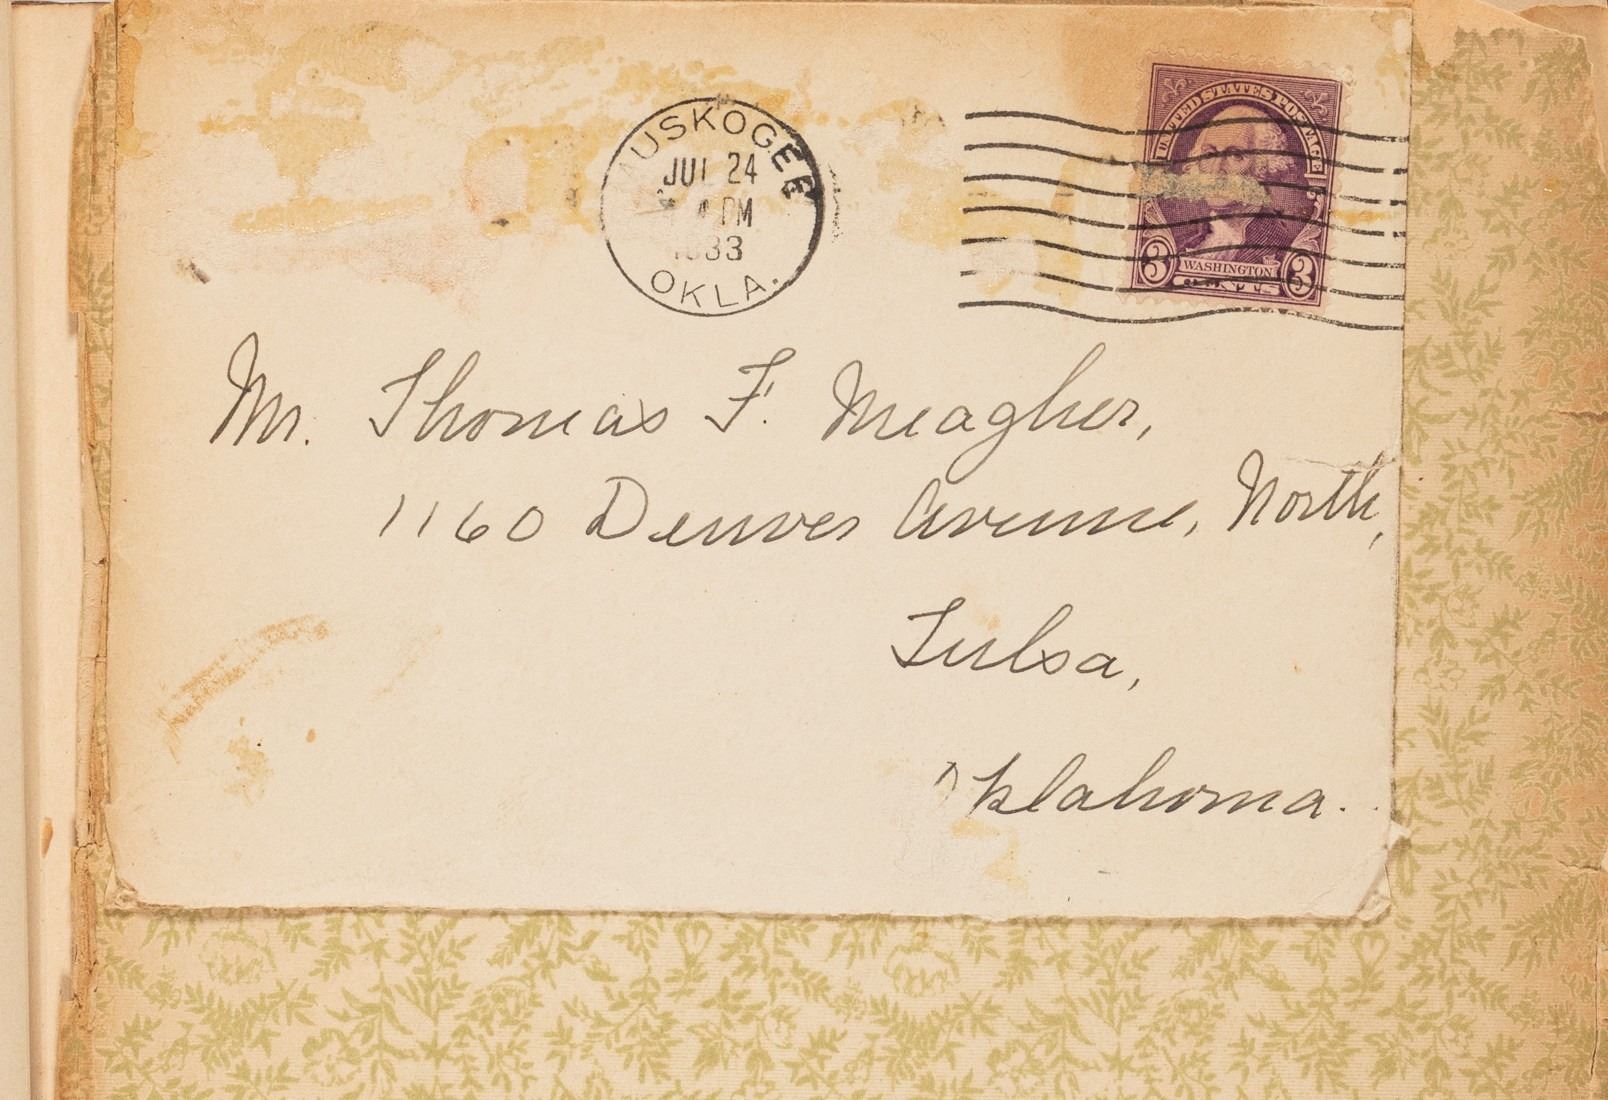 MUSKOGEE
JUL 24
4 PM
1933
OKLA.
UNITED STATES POSTAGE
3 WASHINGTON 3
Mr. Thomas F. Meagher,
1160 Denver Avenue, North,
Tulsa,
Oklahoma.